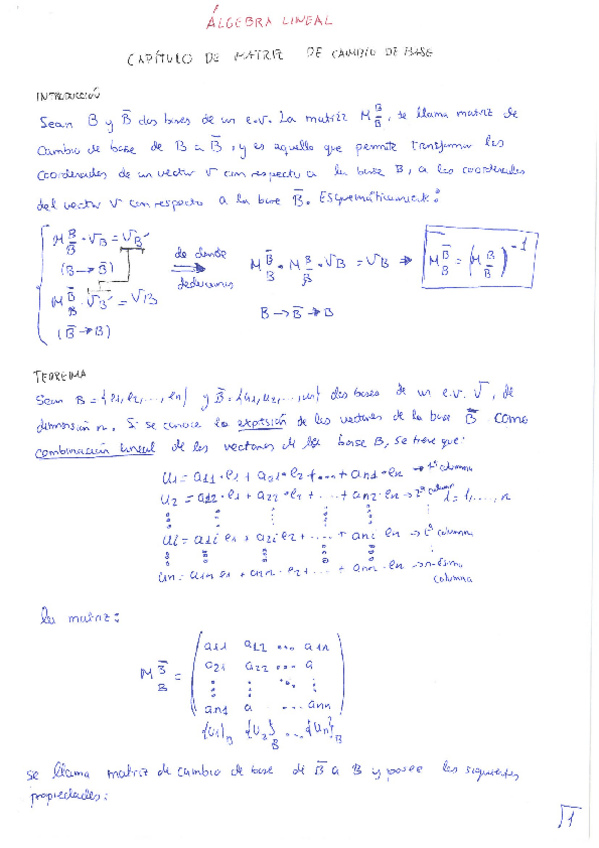 ÁLGEBRA LINEAL
CAPÍTULO DE MATRIZ DE CAMBIO DE BASE
INTRODUCCIÓN
Sean B y B̅ dos bases de un e.v. La matriz M B B̅, se llama matriz de
cambio de base de B a B̅, y es aquella que permite transformar las
coordenadas de un vector V con respecto a la base B, a las coordenadas
del vector V con respecto a la base B̅. Esquemáticament.:
M B B̅ · VB = VB̅
(B → B̅)
M B̅ B · VB̅ = VB
(B̅ → B)
de donde
deducimos
M B̅ B · M B B̅ · VB = VB → M B̅ B = (M B B̅)^-1
B → B̅ → B
TEOREMA
Sean B = {e1, e2, ..., en} y B̅ = {u1, u2, ..., un} dos bases de un e.v. V, de
dimensión n. Si se conoce la de los vectores de la base B̅ como
combinación lineal de los vectores de la base B, se tiene que:
u1 = a11·e1 + a21·e2 + ... + an1·en → 1ª columna
u2 = a12·e1 + a22·e2 + ... + an2·en → 2ª column i = 1, ..., n
ui = a1i e1 + a2i e2 + ... + ani en → iª columna
un = a1n e1 + a2n·e2 + ... + ann·en → n-ésima
columna
la matriz:
M B̅ B =
a11 a12 ... a1n
a21 a22 ... a
an1 a ... ann
{u1}B {u2}B ... {un}B
se llama matriz de cambio de base de B̅ a B y posee las siguientes
propiedades:
1